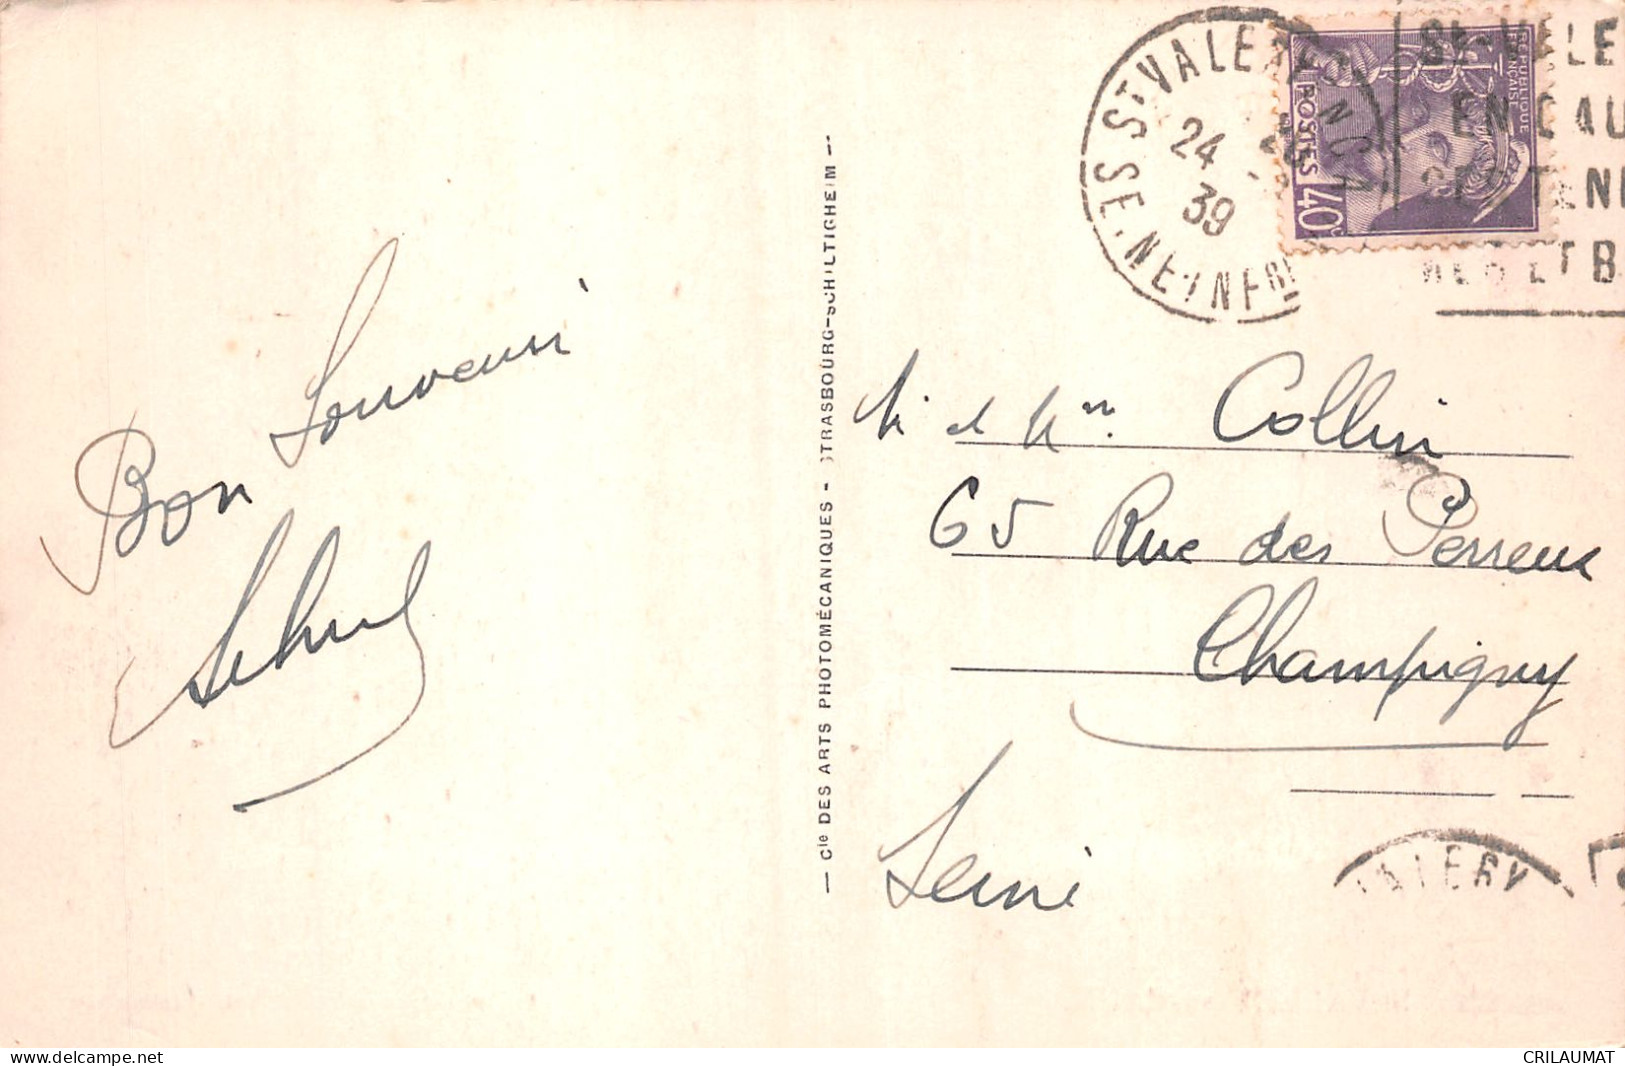 Bon Souvenir
— Cie DES ARTS PHOTOMÉCANIQUES - STRASBOURG-SCHILTIGHEIM —
ST VALERY
24
39
SE.NE-INFRE
RÉPUBLIQUE
FRANÇAISE
POSTES 40c
EN CAU
M et Mme Collin
65 Rue des Perreux
Champigny
Seine
ALERY
www.delcampe.net
CRILAUMAT